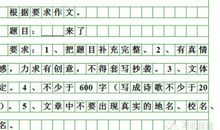 根据要求作文。
题目：____来了
要求：1、把题目补充完整。2、有真情
感，力求有创意，不得套写抄袭。3、文体
定。4、不少于600字（写成诗歌不少于20
）。5、文章中不要出现真实的地名、校名、
名。